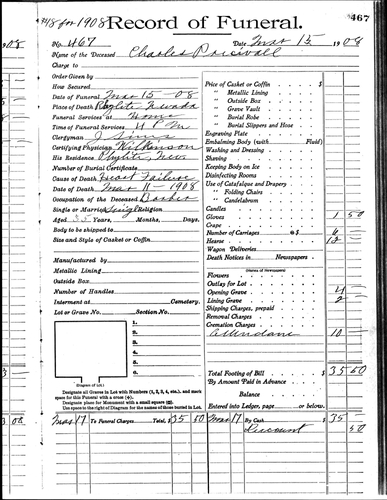 48 for 1908 Record of Funeral. 467
No. 467 Date Mar 15 1908
Name of the Deceased Charles Percivall
Charge to
Order Given by
How Secured
Date of Funeral Mar 15 - 08
Place of Death Rhyolite Nevada
Funeral Services at Home
Time of Funeral Services 4 P.M.
Clergyman J Sims
Certifying Physician Wilkinson
His Residence Rhyolite, Nev
Number of Burial Certificate
Cause of Death Heart Failure
Date of Death Mar 11 - 1908
Occupation of the Deceased Barber
Single or Married Single Religion
Aged 35 Years, Months, Days.
Body to be shipped to
Size and Style of Casket or Coffin
Manufactured by
Metallic Lining
Outside Box
Number of Handles
Interment at Cemetery.
Lot or Grave No. Section No.
1.
2.
3.
4.
5.
6.
(Diagram of Lot)
Designate all Graves in Lot with Numbers (1, 2, 3, 4, etc.), and mark
space for this Funeral with a cross (+).
Designate place for Monument with a small square (□).
Use space to the right of Diagram for the names of those buried in Lot.
Price of Casket or Coffin $
" Metallic Lining
" Outside Box
" Grave Vault
" Burial Robe
" Burial Slippers and Hose
Engraving Plate
Embalming Body (with Fluid)
Washing and Dressing
Shaving
Keeping Body on Ice
Disinfecting Rooms
Use of Catafalque and Drapery
" Folding Chairs
" Candelabrum
Candles
Gloves 1 50
Crape
Number of Carriages @$ 6
Hearse 12
Wagon Deliveries
Death Notices in Newspapers
Flowers
Outlay for Lot
Opening Grave 4
Lining Grave 2
Shipping Charges, prepaid
Removal Charges
Cremation Charges
Attendance 10
Total Footing of Bill $ 35 50
By Amount Paid in Advance
Balance
Entered into Ledger, page or below.
Mar 17 To Funeral Charges Total, $ 35 50 Mar 17 By Cash $ 35
Discount 50